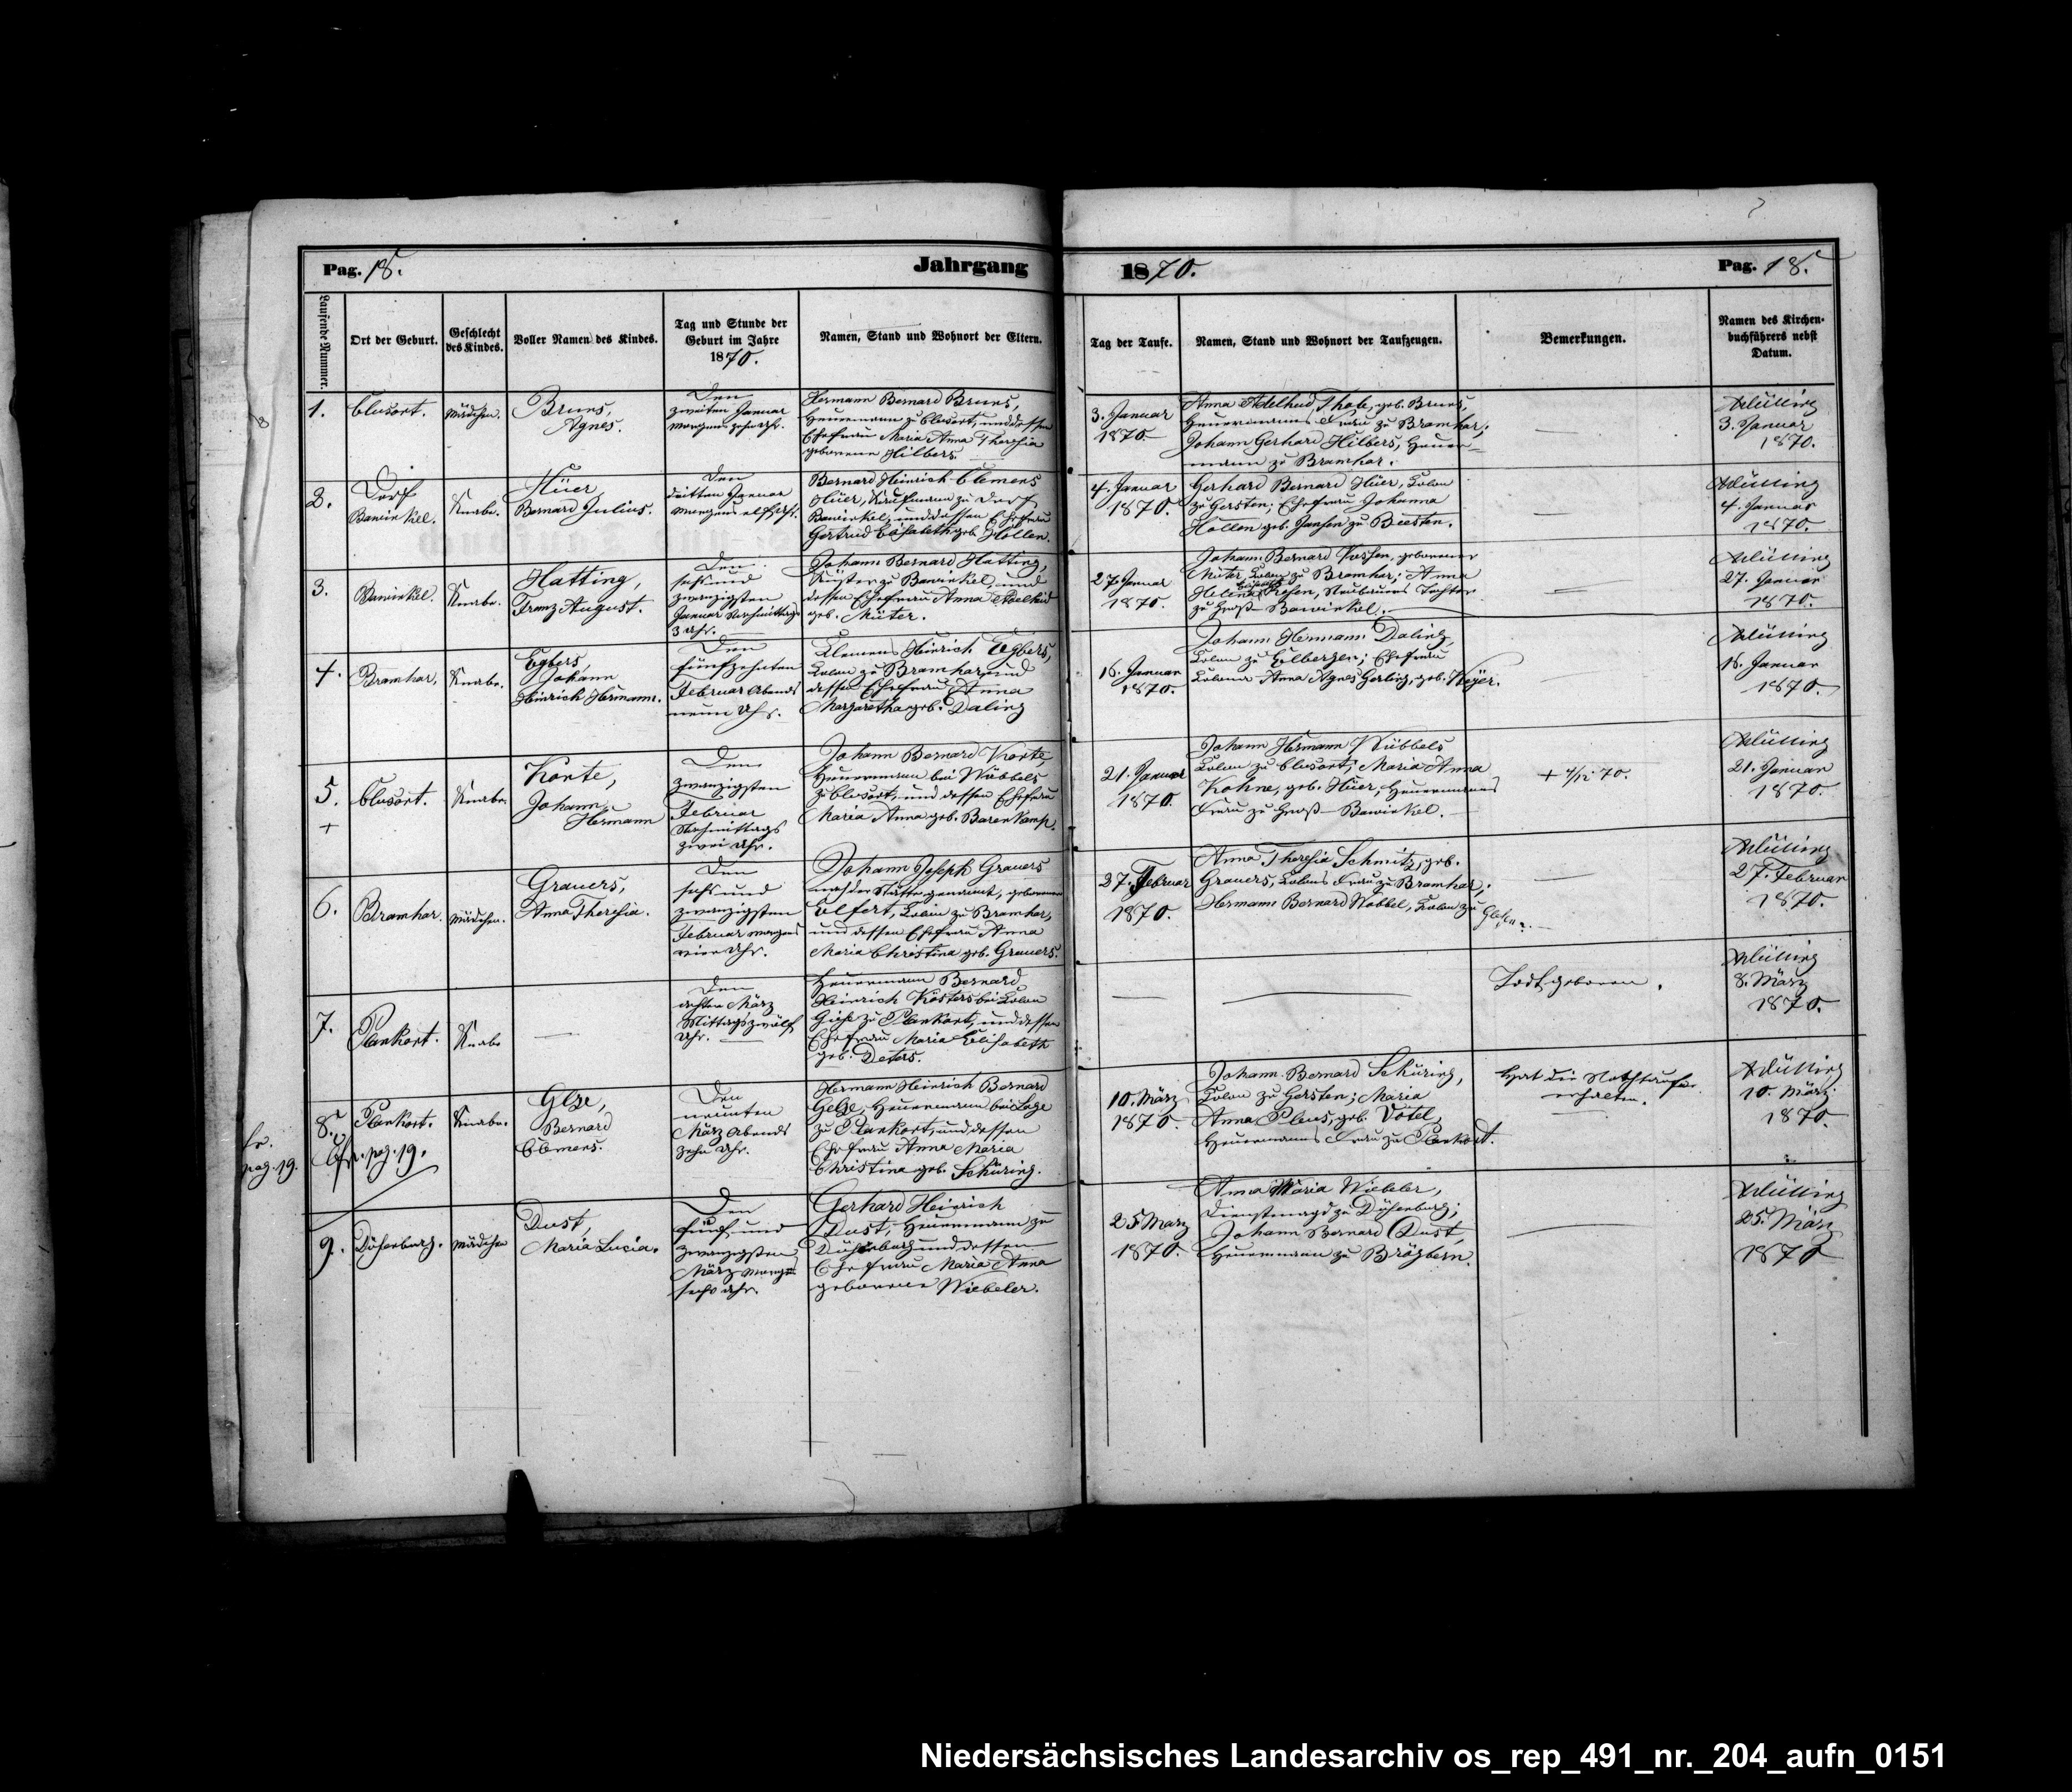 Pag. 18.
Jahrgang
1870.
Pag. 18.
Laufende Nummer.
Ort der Geburt.
Geschlecht
des Kindes.
Voller Namen des Kindes.
Tag und Stunde der
Geburt im Jahre
1870.
Namen, Stand und Wohnort der Eltern.
Tag der Taufe.
Namen, Stand und Wohnort der Taufzeugen.
Bemerkungen.
Namen des Kirchen-
buchführers nebst
Datum.
1.
Clusort.
Mädchen.
Bruns,
Agnes.
Den
zweiten Januar
Morgens zehn Uhr.
Hermann Bernard Bruns,
Heuermann zu Clusort, und dessen
Ehefrau Maria Anna Theresia
geborene Hilbers.
3. Januar
1870.
Anna Adelheid Thole, geb. Bruns,
Heuermanns Frau zu Bramhar;
Johann Gerhard Hilbers, Heuer-
mann zu Bramhar.
3. Januar
1870.
2.
Dorf
Bawinkel.
Knabe.
Hüer,
Bernard Julius.
Den
dritten Januar
Morgens elf Uhr.
Bernard Heinrich Clemens
Hüer, Kaufmann zu Dorf
Bawinkel, und dessen Ehefrau
Gertrud Elisabeth geb. Hollen.
4. Januar
1870.
Gerhard Bernard Hüer, Colon
zu Gersten; Ehefrau Johanna
Hollen geb. Jansen zu Beesten.
4. Januar
1870.
3.
Bawinkel.
Knabe.
Hatting,
Franz August.
Den
sechs und
zwanzigsten
Januar Nachmittags
3 Uhr.
Johann Bernard Hatting,
Küster zu Bawinkel, und
dessen Ehefrau Anna Adelheid
geb. Müter.
27. Januar
1870.
Johann Bernard Vossen, geborener
Müter, Colon zu Bramhar; Anna
Helena Elisabeth Neubauers Tochter
zu Groß-Bawinkel.
27. Januar
1870.
4.
Bramhar.
Knabe.
Egbers,
Johann
Heinrich Hermann.
Den
fünfzehnten
Februar Abends
neun Uhr.
Klemens Heinrich Egbers,
Colon zu Bramhar, und
dessen Ehefrau Anna
Margaretha geb. Daling
16. Januar
1870.
Johann Hermann Daling,
Colon zu Elbergen; Ehefrau
Colona Anna Agnes Gerling, geb. Meyer.
16. Januar
1870.
5.
+
Clusort.
Knabe.
Korte,
Johann
Hermann
Den
zwanzigsten
Februar
Nachmittags
zwei Uhr.
Johann Bernard Korte
Heuermann bei Wübbels
zu Clusort, und dessen Ehefrau
Maria Anna geb. Barenkamp.
21. Januar
1870.
Johann Hermann Wübbels
Colon zu Clusort; Maria Anna
Kohne, geb. Hüer, Heuermanns
Frau zu Groß-Bawinkel.
+ 4/12 70.
21. Januar
1870.
6.
Bramhar.
Mädchen.
Grauers,
Anna Theresia.
Den
sechs und
zwanzigsten
Februar Morgens
vier Uhr.
Johann Joseph Grauers
nach der Stätte genannt, geborener
Elfert, Colon zu Bramhar,
und dessen Ehefrau Anna
Maria Christina geb. Grauers.
27. Februar
1870.
Anna Theresia Schmitz, geb.
Grauers, Colons Frau zu Bramhar;
Hermann Bernard Nobbel, Colon zu
Glesen.
27. Februar
1870.
7.
Plankort.
Knabe
Den
achten März
Mittags zwölf
Uhr.
Heuermann Bernard
Heinrich Kösters bei Colon
Giese zu Plankort, und dessen
Ehefrau Maria Elisabeth
geb. Deters.
Todtgeboren.
8. März
1870.
8.
Cfr. pag. 19.
fr.
pag. 19.
Plankort.
Knabe.
Gelze,
Bernard
Clemens.
Den
neunten
März Abends
zehn Uhr.
Hermann Heinrich Bernard
Gelze, Heuermann bei Lage
zu Plankort, und dessen
Ehefrau Anna Maria
Christina geb. Schüring.
10. März
1870.
Johann Bernard Schüring,
Colon zu Gersten; Maria
Anna Pleus, geb. Votel,
Heuermanns Frau zu Plankort.
Hat die Nothtaufe
erhalten.
10. März
1870.
9.
Duisenburg.
Mädchen
Dust,
Maria Lucia.
Den
fünf und
zwanzigsten
März Morgens
sechs Uhr.
Gerhard Heinrich
Dust, Heuermann zu
Duisenburg und dessen
Ehefrau Maria Anna
geborene Wiebeler.
25. März
1870.
Anna Maria Wiebeler,
Dienstmagd zu Duisenburg;
Johann Bernard Dust,
Heuermann zu Brögbern.
25. März
1870
Niedersächsisches Landesarchiv os_rep_491_nr._204_aufn_0151